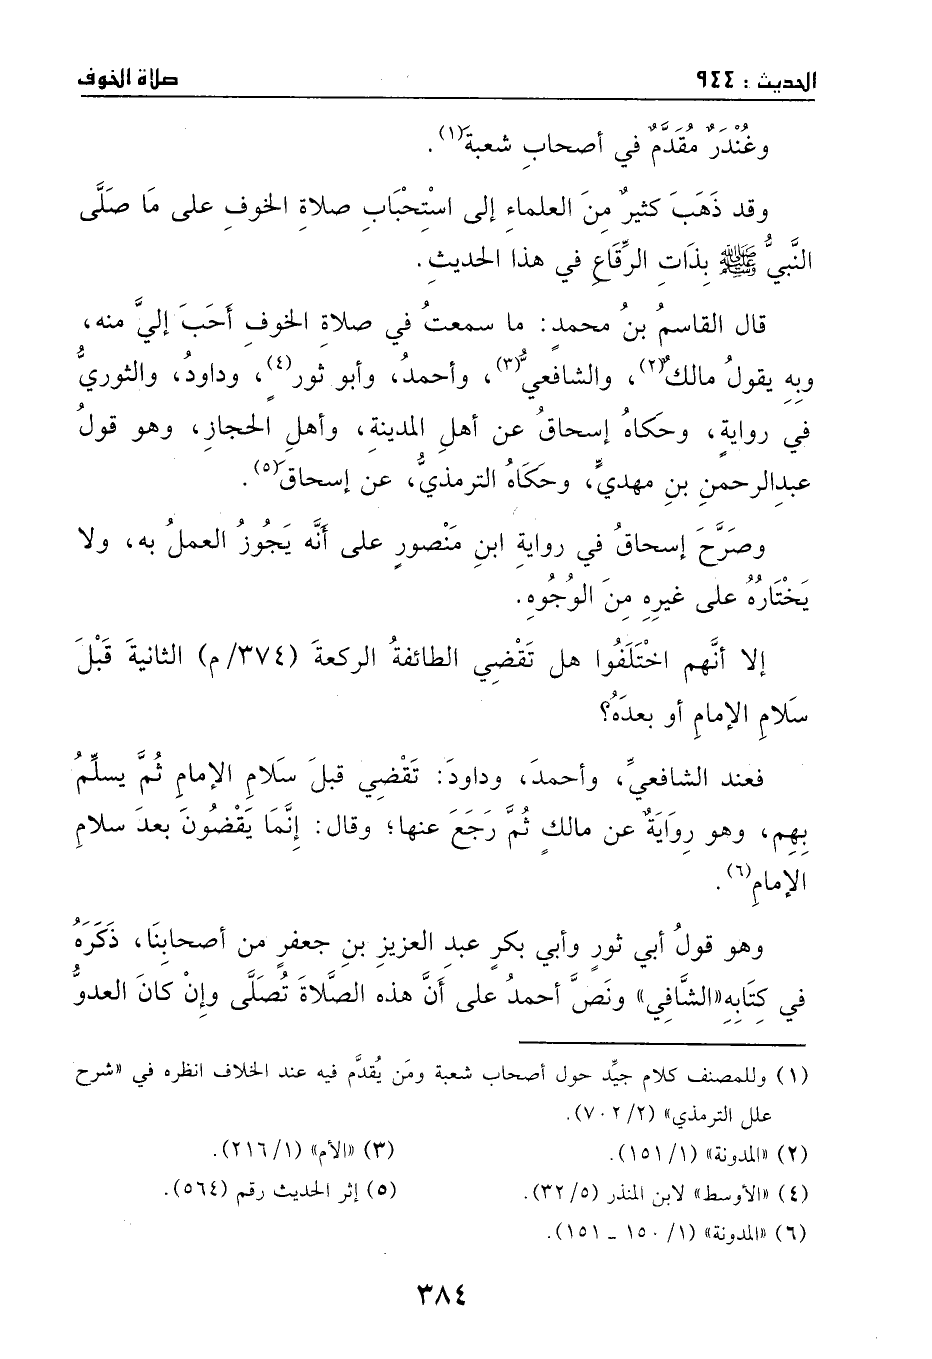 الحديث : ٩٤٤
صلاة الخوف
وغُنْدَرٌ مُقَدَّمٌ في أصحابِ شعبةَ(١).
وقد ذَهَبَ كثيرٌ مِنَ العلماءِ إلى اسْتِحْبَابِ صلاةِ الخوفِ على مَا صَلَّى
النَّبيُّ ﷺ بِذَاتِ الرِّقَاعِ في هذا الحديثِ.
قال القاسمُ بنُ محمدٍ: ما سمعتُ في صلاةِ الخوفِ أَحَبَّ إليَّ منه،
وبِهِ يقولُ مالكٌ(٢)، والشافعيُّ(٣)، وأحمدُ، وأبو ثورٍ(٤)، وداودُ، والثوريُّ
في روايةٍ، وحَكَاهُ إسحاقُ عن أهلِ المدينةِ، وأهلِ الحجازِ، وهو قولُ
عبدِالرحمنِ بنِ مهديٍّ، وحكَاهُ الترمذيُّ، عن إسحاقَ(٥).
وصَرَّحَ إسحاقُ في روايةِ ابنِ مَنْصورٍ على أنَّه يَجُوزُ العملُ به، ولا
يَخْتَارُهُ على غيرِهِ مِنَ الوُجُوهِ.
إلا أنَّهم اخْتَلَفُوا هل تَقْضِي الطائفةُ الركعةَ (٣٧٤/ م) الثانيةَ قَبْلَ
سَلامِ الإمامِ أو بعدَهُ؟
فعند الشافعيِّ، وأحمدَ، وداودَ: تَقْضِي قبلَ سَلامِ الإمامِ ثُمَّ يسلِّمُ
بِهِم، وهو رِوَايَةٌ عن مالكٍ ثُمَّ رَجَعَ عنها؛ وقال: إنَّمَا يَقْضُونَ بعدَ سلامِ
الإمامِ(٦).
وهو قولُ أبي ثورٍ وأبي بكرٍ عبدِ العزيزِ بنِ جعفرٍ من أصحابِنَا، ذَكَرَهُ
في كِتَابِهِ«الشَّافِي» ونَصَّ أحمدُ على أنَّ هذه الصَّلاةَ تُصَلَّى وإنْ كانَ العدوُّ
(١) وللمصنف كلام جيِّد حول أصحاب شعبة ومَن يُقدَّم فيه عند الخلاف انظره في «شرح
علل الترمذي» (٧٠٢/٢).
(٢) «المدونة» (١٥١/١).
(٣) «الأم» (٢١٦/١).
(٤) «الأوسط» لابن المنذر (٣٢/٥).
(٥) إثر الحديث رقم (٥٦٤).
(٦) «المدونة» (١/ ١٥٠ ـ ١٥١).
٣٨٤